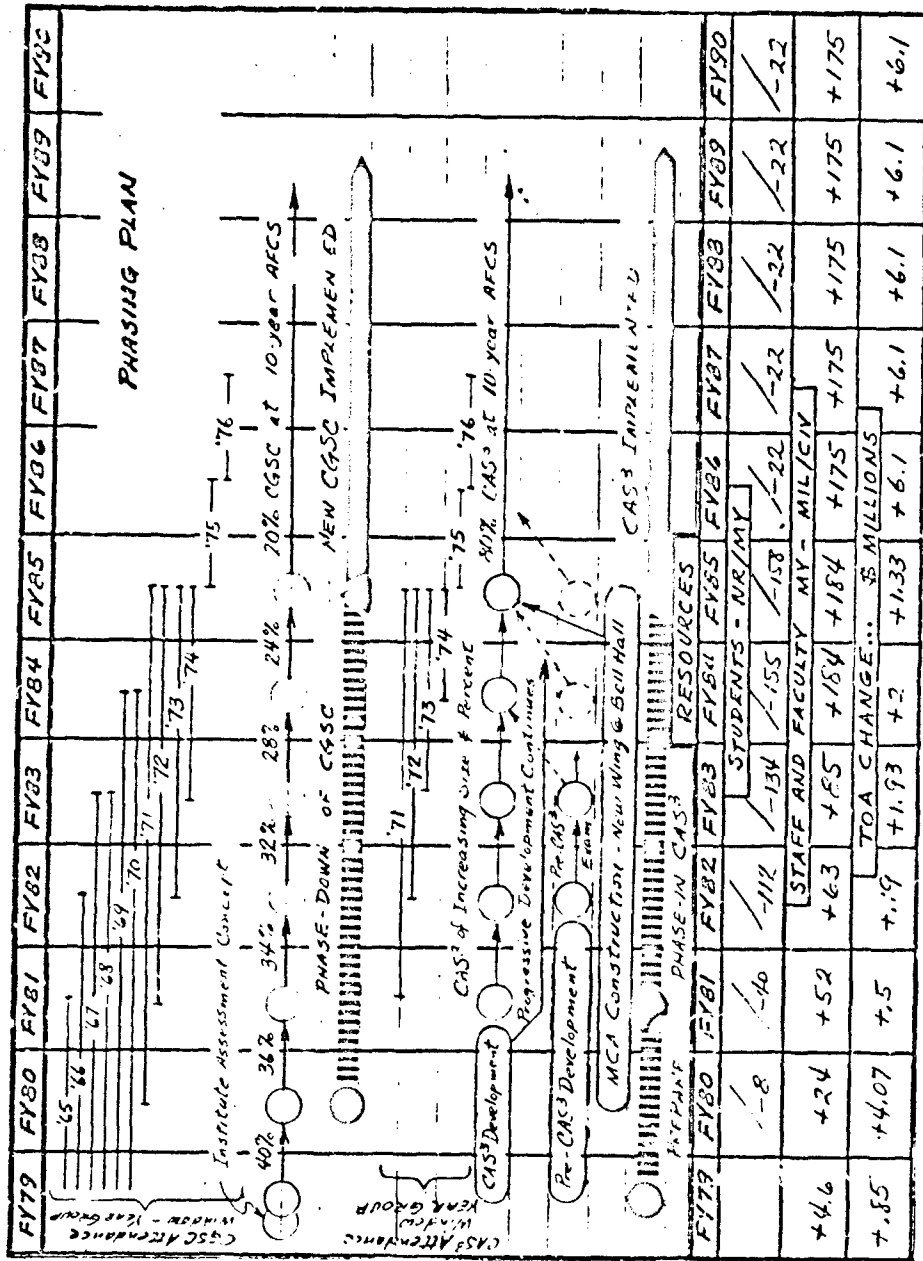 FY79 FY80 FY81 FY82 FY83 FY84 FY85 FY86 FY87 FY88 FY89 FY90
PHASING PLAN
CGSC Attendance
Window - Year Group
'65
'66
'67
'68
'69
'70
'71
'72
'73
'74
'75
'76
Institute Assessment Concept
40% 36% 34% 32% 28% 24% 20% CGSC at 10-year AFCS
PHASE-DOWN OF CGSC NEW CGSC IMPLEMEN ED
CAS³ Attendance
Window
YEAR GROUP
'71
'72
'73
'74
'75
'76
CAS³ Development
CAS³ of Increasing Size & Percent
CAS³ at 10-year AFCS
Progressive Development Continues
Pre-CAS³ Development
Pre-CAS³
Exam
MCA Construction - New Wing @ Bell Hall
PREPARE PHASE-IN CAS³ CAS³ IMPLEMENTED
RESOURCES
FY79 FY80 FY81 FY82 FY83 FY84 FY85 FY86 FY87 FY88 FY89 FY90
STUDENTS - NR/MY
/-8 /-40 /-112 /-134 /-155 /-158 /-22 /-22 /-22 /-22 /-22
STAFF AND FACULTY MY - MIL/CIV
+4.6 +24 +52 +63 +85 +184 +184 +175 +175 +175 +175 +175
TOA CHANGE... $ MILLIONS
+.85 +4.07 +.5 +.19 +1.93 +2 +1.33 +6.1 +6.1 +6.1 +6.1 +6.1